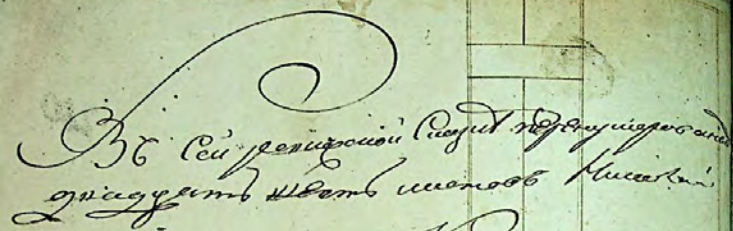 Въ сей ревизской Скаски перенумеровано
двадцать шесть листовъ